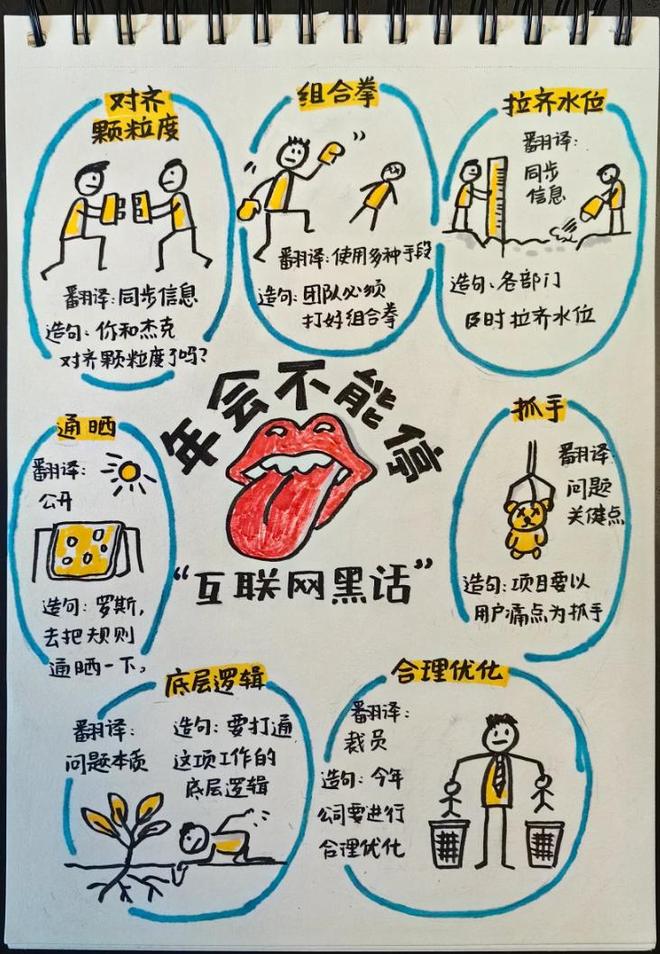 对齐
颗粒度
翻译:同步信息
造句:你和杰克
对齐颗粒度了吗?
组合拳
翻译:使用多种手段
造句:团队必须
打好组合拳
拉齐水位
翻译:
同步
信息
造句:各部门
及时拉齐水位
年会不能停
“互联网黑话”
通晒
翻译:
公开
造句:罗斯,
去把规则
通晒一下,
抓手
翻译:
问题
关健点
造句:项目要以
用户痛点为抓手
底层逻辑
翻译:
问题本质
造句:要打通
这项工作的
底层逻辑
合理优化
翻译:
裁员
造句:今年
公司要进行
合理优化